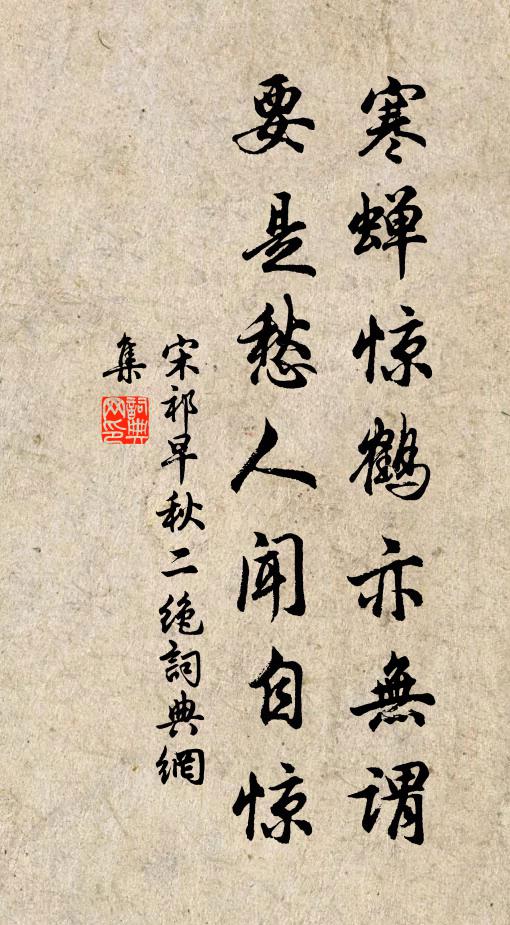 寒蝉惊鹤亦無谓
要是愁人闻自惊
宋祁早秋二绝詞典網
集
詞典
网印